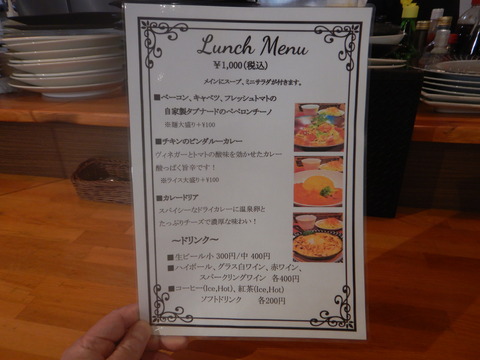 Lunch Menu
￥1,000(税込)
メインにスープ、ミニサラダが付きます。
■ベーコン、キャベツ、フレッシュトマトの
自家製タプナードのペペロンチーノ
※麺大盛り+¥100
■チキンのビンダルーカレー
ヴィネガーとトマトの酸味を効かせたカレー
酸っぱく旨辛です!
※ライス大盛り+¥100
■カレードリア
スパイシーなドライカレーに温泉卵と
たっぷりチーズで濃厚な味わい!
～ドリンク～
■生ビール小 300円/中 400円
■ハイボール、グラス白ワイン、赤ワイン、
スパークリングワイン 各400円
■コーヒー(Ice,Hot)、紅茶(Ice,Hot)
ソフトドリンク 各200円